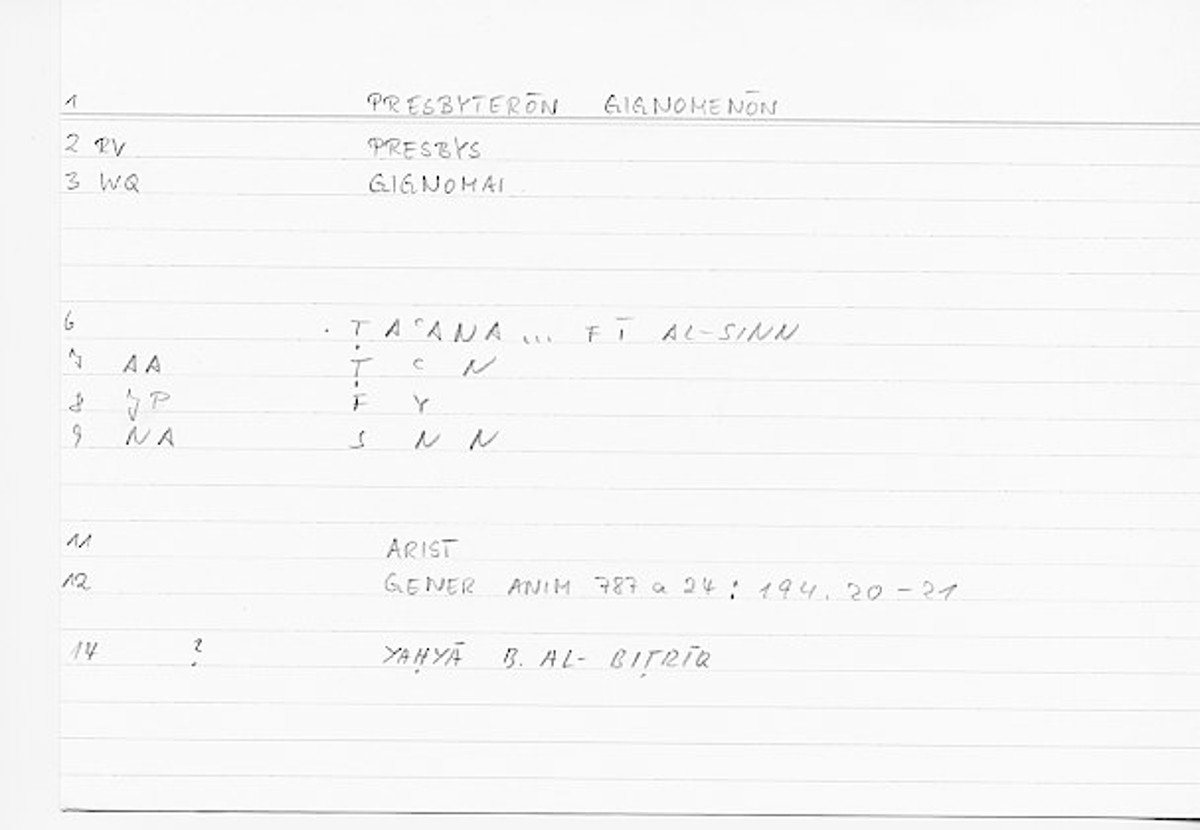 1 PRESBYTERŌN GIGNOMENŌN
2 RV PRESBYS
3 WQ GIGNOMAI
6 . ṬAʿANA ... FĪ AL-SINN
7 AA Ṭ ʿ N
8 JP F Y
9 NA S N N
11 ARIST
12 GENER ANIM 787 a 24 : 194. 20-21
14 ? YAḤYĀ B. AL-BIṬRĪQ